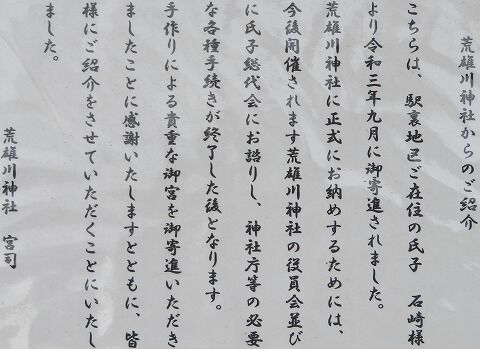 荒雄川神社からのご紹介
こちらは、駅裏地区ご在住の氏子　石崎様
より令和三年九月に御寄進されました。
荒雄川神社に正式にお納めするためには、
今後開催されます荒雄川神社の役員会並び
に氏子総代会にお諮りし、神社庁等の必要
な各種手続きが終了した後となります。
手作りによる貴重な御宮を御寄進いただき
ましたことに感謝いたしますとともに、皆
様にご紹介をさせていただくことにいたし
ました。
荒雄川神社　宮司